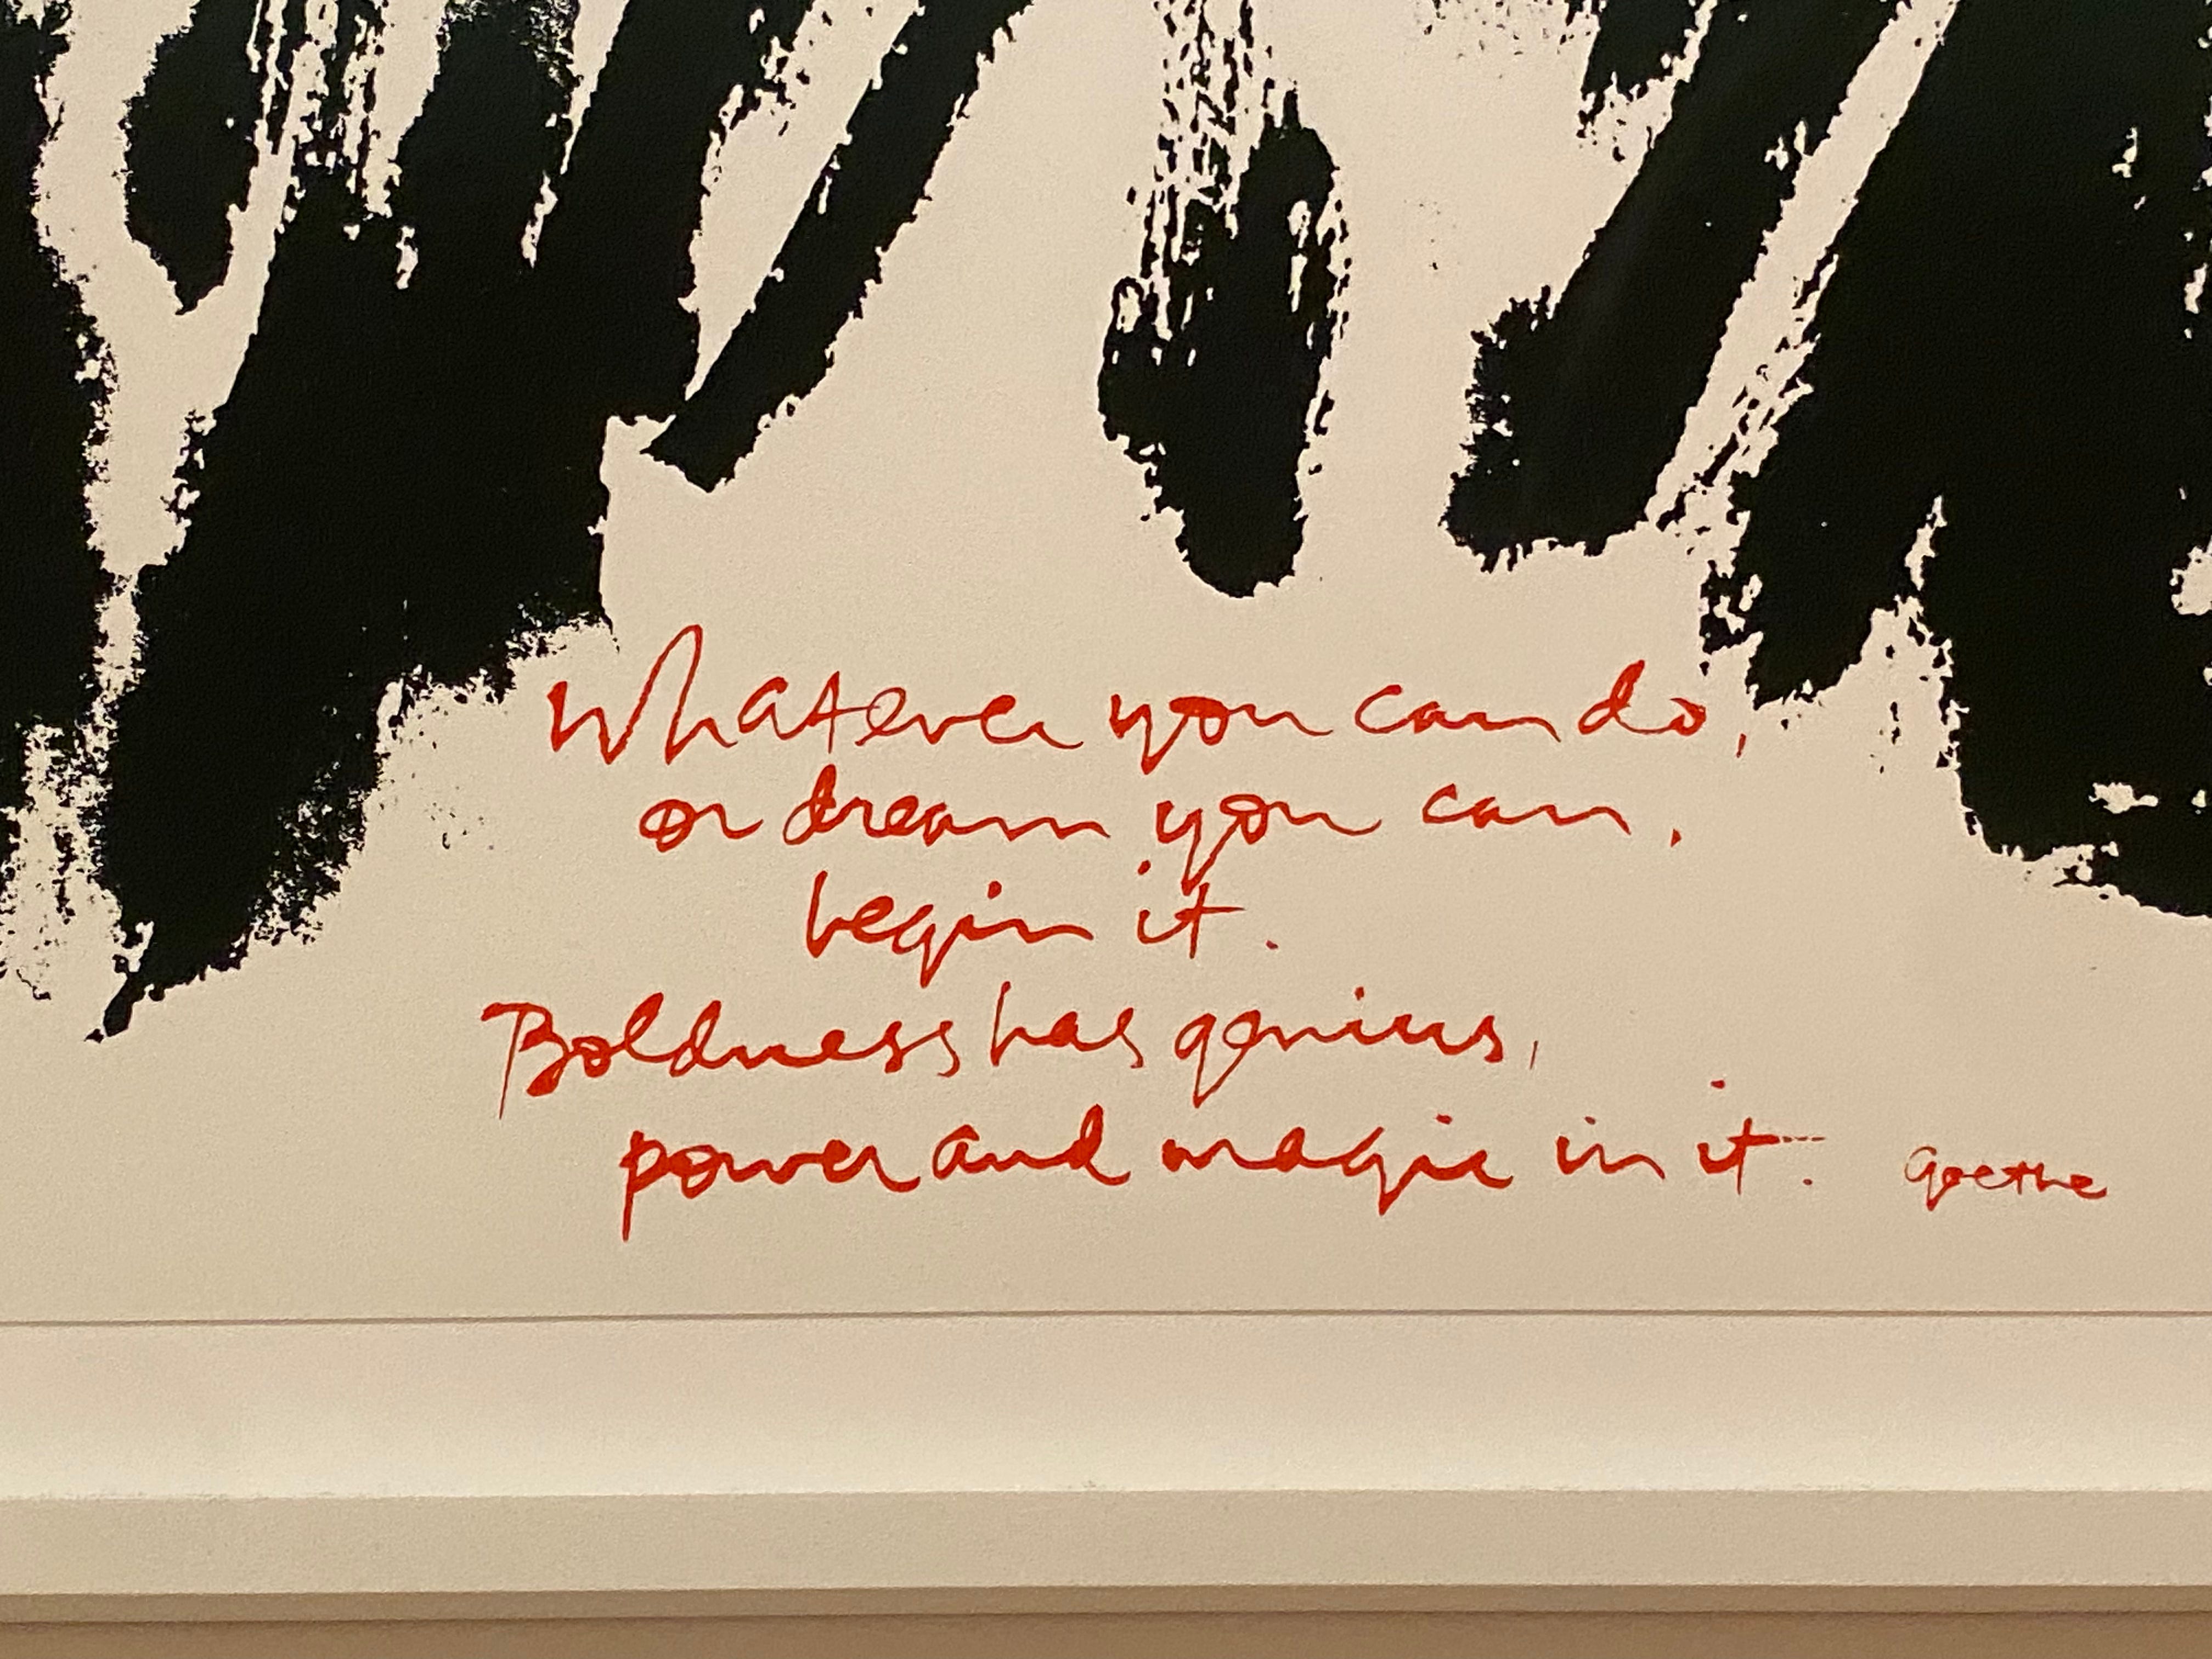 Whatever you can do,
or dream you can,
begin it.
Boldness has genius,
power and magic in it. Goethe